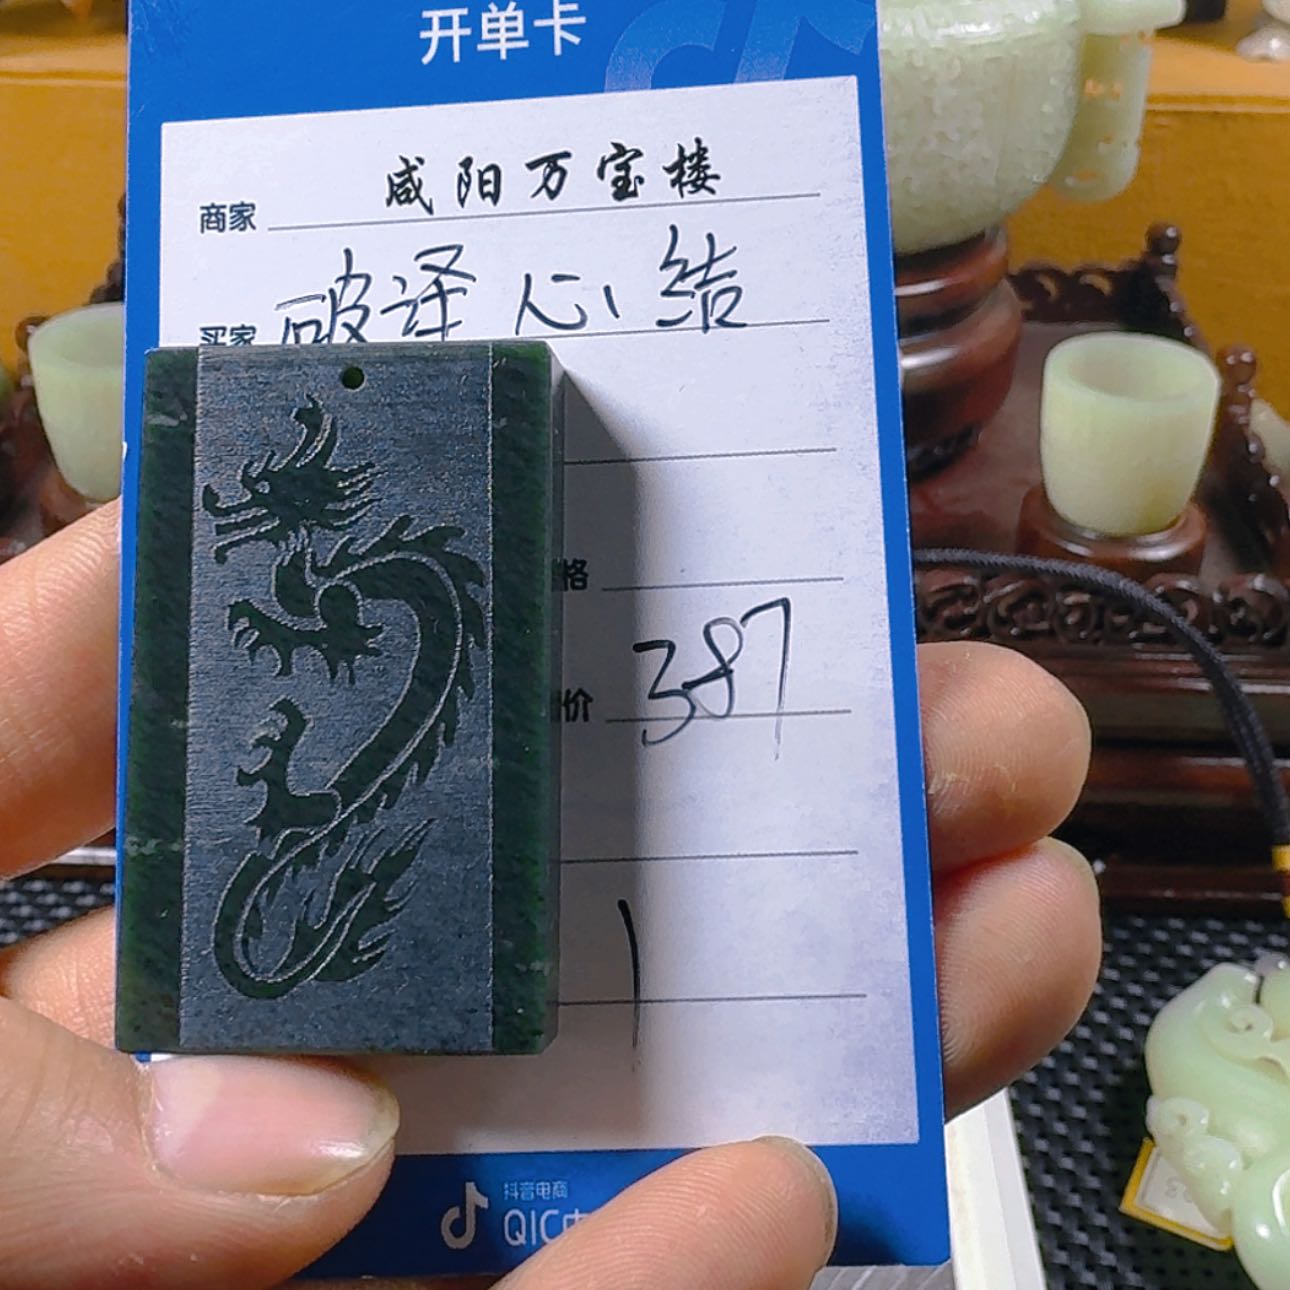 开单卡
商家 咸阳万宝楼
买家 破译心结
格
价 387
1
抖音电商
QIC